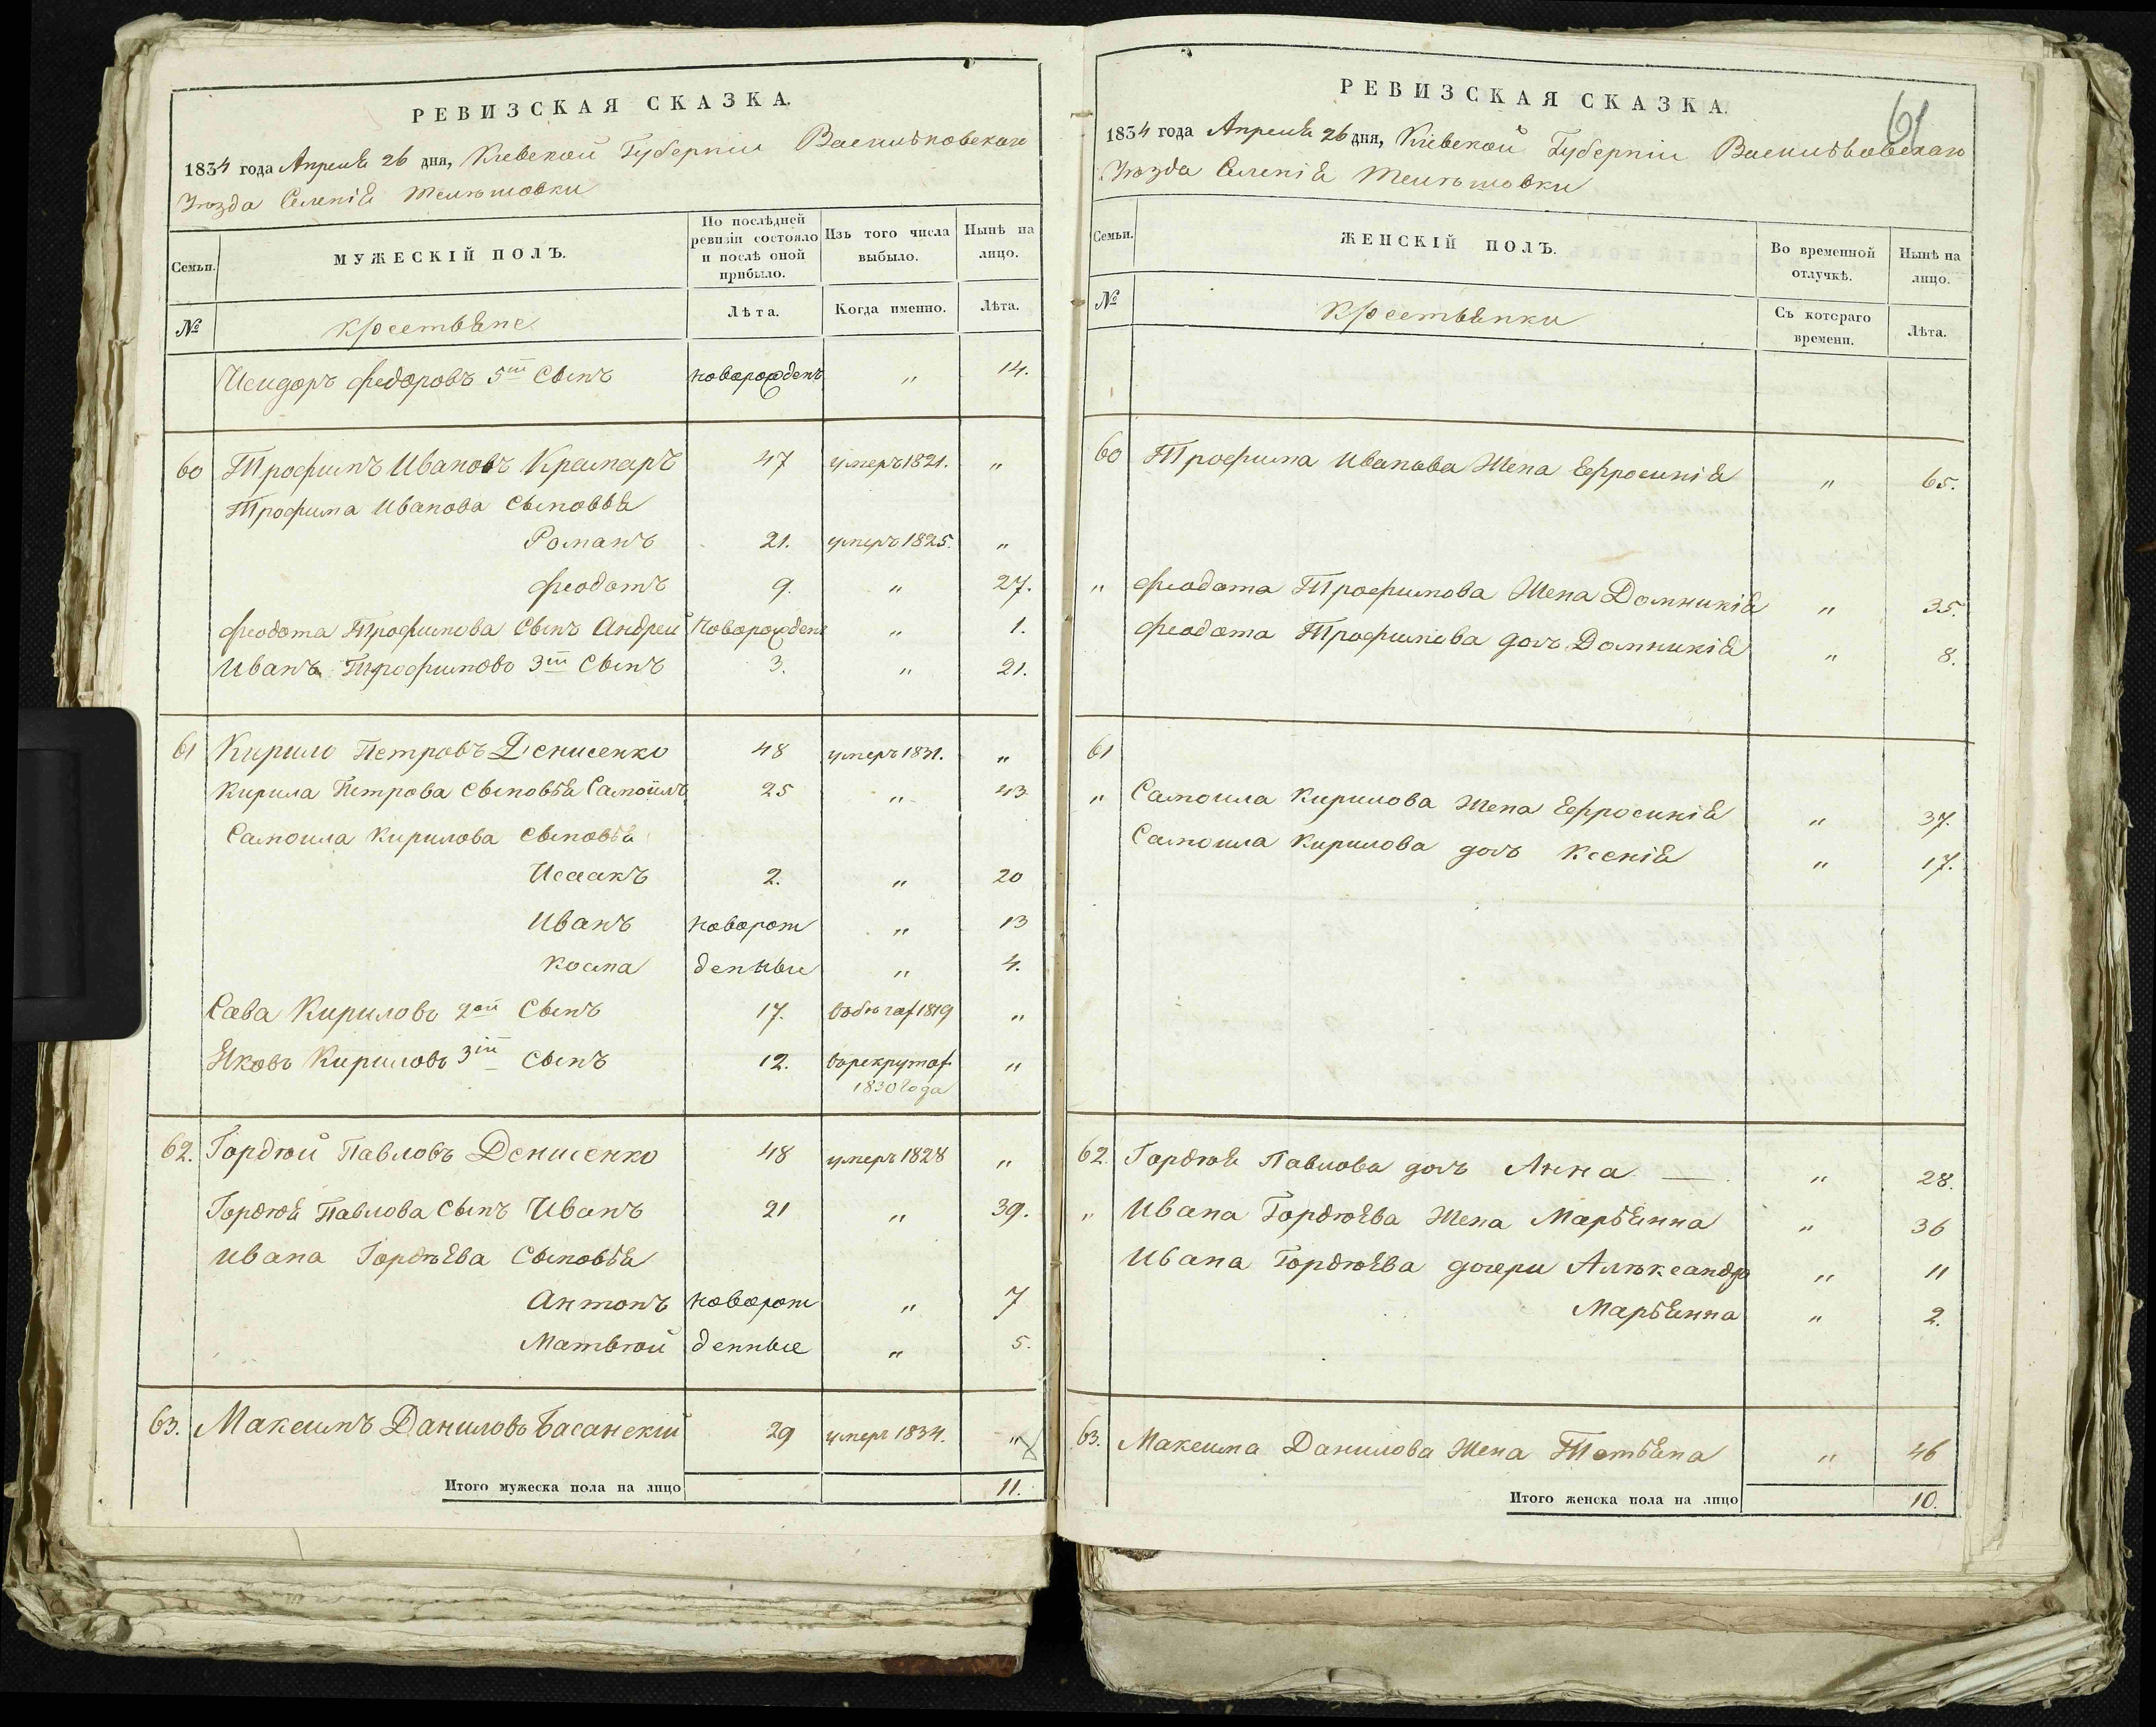 РЕВИЗСКАЯ СКАЗКА.
1834 года Апреля 26 дня, Кіевской Губерніи Васильковскаго
Уѣзда Селенія Телѣшовки
Семьи.
МУЖЕСКІЙ ПОЛЪ.
По послѣдней ревизіи состояло и послѣ оной прибыло.
Изъ того числа выбыло.
Нынѣ на лицо.
№
Крестьяне
Лѣта.
Когда именно.
Лѣта.
Исидоръ Федоровъ 5ій Сынъ новорожденъ " 14.
60 Трофимъ Ивановъ Крамаръ 47 умеръ 1821. "
Трофима Иванова Сыновья
Романъ 21. умеръ 1825. "
Феодотъ 9. " 27.
Феодота Трофимова Сынъ Андрей Новорожденъ " 1.
Иванъ Трофимовъ 3ій Сынъ 3. " 21.
61 Кирило Петровъ Денисенко 48 умеръ 1831. "
Кирила Петрова Сыновья Самойлъ 25 " 43
Самоила Кирилова Сыновья
Исаакъ 2. " 20
Иванъ новорож " 13
Косма денные " 4.
Сава Кириловъ 2ой Сынъ 17. въ бѣгах 1819 "
Яковъ Кириловъ 3ій Сынъ 12. въ рекрутах "
1830 года
62. Гордѣй Павловъ Денисенко 48 умеръ 1828 "
Гордѣя Павлова Сынъ Иванъ 21 " 39.
Ивана Гордѣева Сыновья
Антонъ новорож " 7
Матвѣй денные " 5.
63. Максимъ Даниловъ Басанскій 29 умеръ 1834. "
Итого мужеска пола на лицо 11.
РЕВИЗСКАЯ СКАЗКА.
61
1834 года Апреля 26 дня, Кіевской Губерніи Васильковскаго
Уѣзда Селенія Телѣшовки
Семьи.
ЖЕНСКІЙ ПОЛЪ.
Во временной отлучкѣ.
Нынѣ на лицо.
№
Крестьянки
Съ котораго времени.
Лѣта.
60 Трофима Иванова Жена Ефросинія " 65.
" Феодота Трофимова Жена Домникія " 35.
Феодота Трофимова дочь Домникія " 8.
61
" Самоила Кирилова Жена Ефросинія " 37.
Самоила Кирилова дочь Ксенія " 17.
62. Гордѣя Павлова дочь Анна — " 28.
" Ивана Гордѣева Жена Марьянна " 36
Ивана Гордѣева дочери Алѣксандра " 11
Марьянна " 2.
63. Максима Данилова Жена Татьяна " 46
Итого женска пола на лицо 10.